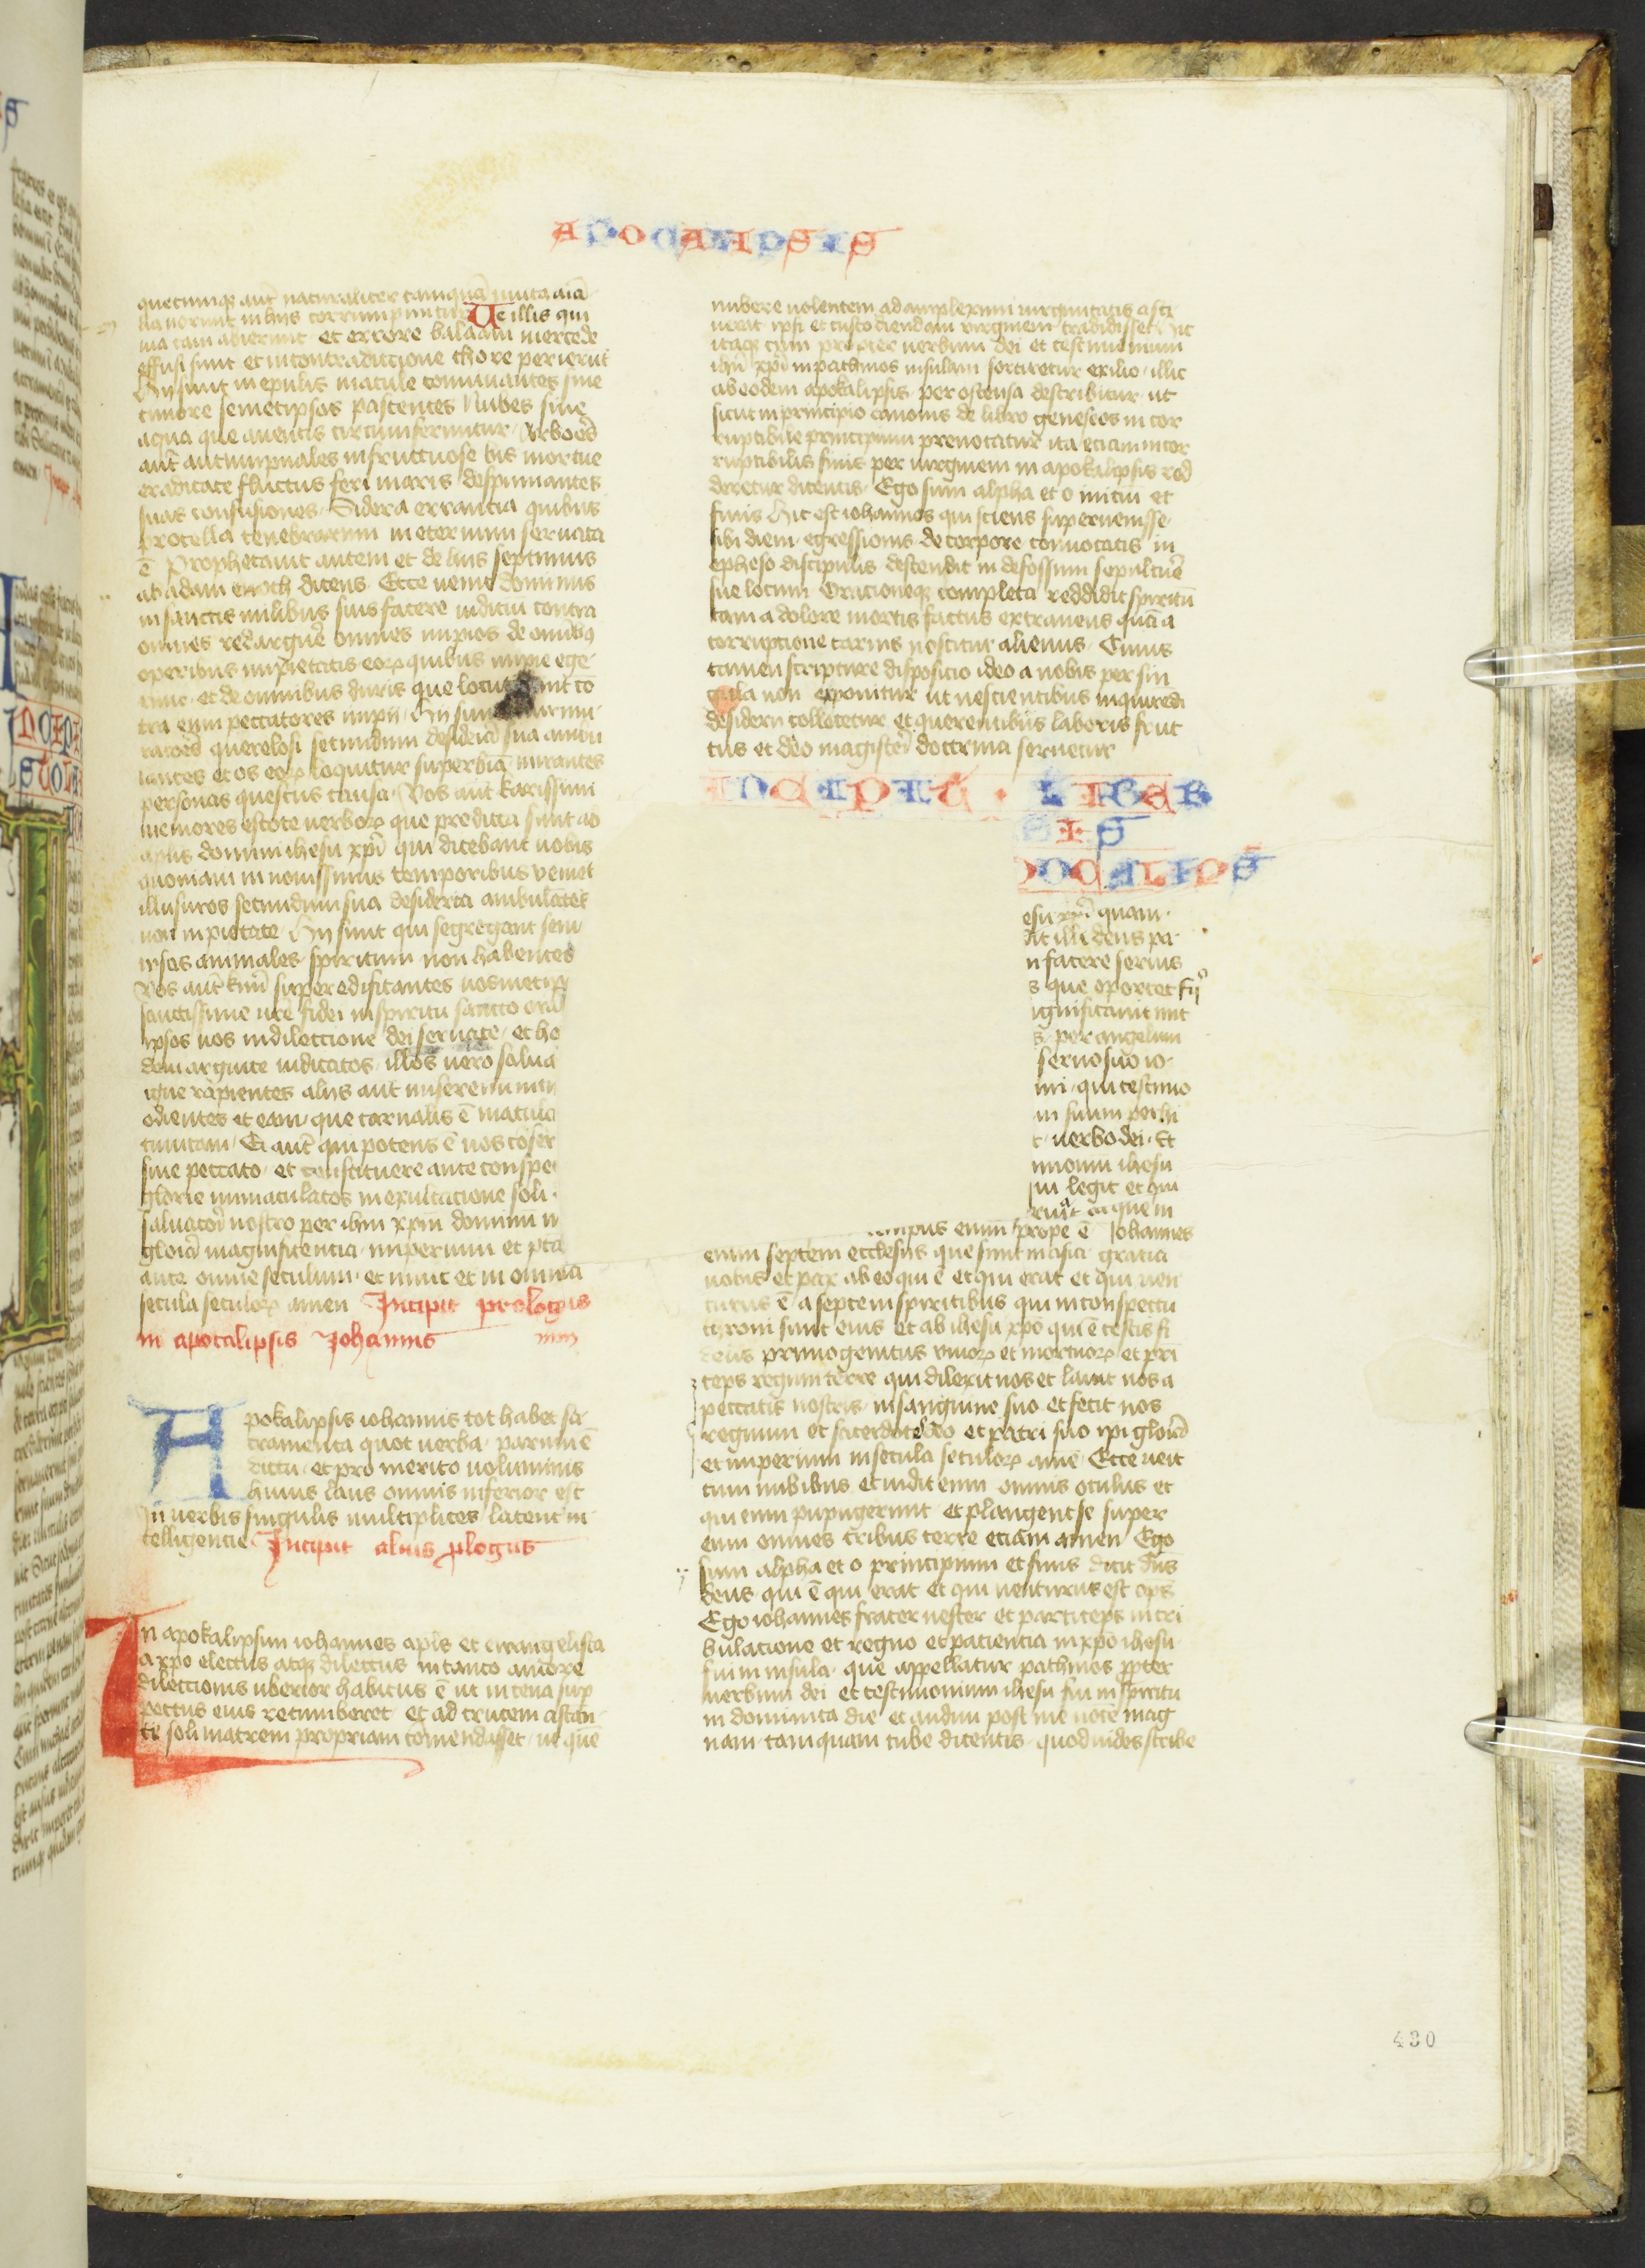 APOCALIPSIS
quecumqꝫ aut naturaliter tamquā muta aīa
lia norunt in hijs corrumpuntur Ve illis qui
via cain abierunt et errore balaam mercede
effusi sunt et in contradictione chore perierūt
Hij sunt in epulis macule conuiuantes sine
timore semetipsos pascentes Nubes sine
aqua que a uentis circumferuntur Arbores
aut autumpnales infructuose bis mortue
eradicate fluctus feri maris despumantes
suas confusiones Sidera errancia quibus
procella tenebrarum in eternum seruata
ē Prophetauit autem et de hijs septimus
ab adam enoch dicens Ecce uenit dominus
in sanctis milibus suis facere iudiciū contra
omnes et arguere omnes impios de omībꝫ
operibus impietatis eoꝝ quibus impie ege
runt et de omnibus duris que locut unt cō
tra eum peccatores impij Hij sunt murmu
ratores querelosi secundum desideria sua ambu
lantes et os eoꝝ loquitur superbiā mirantes
personas questus causa Vos aut karissimi
memores estote uerboꝝ que predicta sunt ab
aplis domini ihesu xpī qui dicebant uobis
quoniam in nouissimis temporibus venient
illusores secundum sua desideria ambulātes
non in pietate Hij sunt qui segregant sem
ipsos animales spiritum non habentes
Vos aut kmī superedificantes uosmetip
sanctissime ure fidei in spiritu sancto ora
ipsos uos in dilectione dei seruate et ho
dem arguite iudicatos illos uero salua
igne rapientes alijs aut miseremini
odientes et eam que carnalis ē macula
tunicam Ei aut qui potens ē uos cōser
sine peccato et constituere ante conspe
glorie immaculatos in exultacione soli
saluatori nostro per ihm xpm dominū n
gloria magnificentia imperium et pta
ante omne seculum et nunc et in omnia
secula seculoꝝ amen Incipit prologus
in apocalipsis Johannis
Apokalipsis iohannis tot habet sa
cramenta quot uerba parum ē
dictu et pro merito uoluminis
huius laus omnis inferior est
In uerbis singulis multiplices latent in
telligencie Incipit alius plogus
In apokalipsim iohannes aplus et ewangelista
a xpo electus atqꝫ dilectus in tanto amore
dilectionis uberior habitus ē ut in cena sup
pectus eius recumberet et ad crucem astan
te soli matrem propriam comendasset ut quē
nubere uolentem ad amplexum uirginitatis asci
uerat ipsi et custodiendam virginem tradidisset Hic
itaqꝫ cum propter uerbum dei et testimonium
ihū xpī in pathmos insulam sortiretur exilio illic
ab eodem apokalipsis per ostensa describitur ut
sicut in principio canonis de libro geneseos in cor
ruptibile principium prenotatur ita etiam incor
ruptibilis finis per uirginem in apokalipsis red
deretur dicentis Ego sum alpha et o initiū et
finis Hic est iohannes qui sciens superuenisse
sibi diem egressionis de corpore conuocatis in
epheso discipulis descendit in defossum sepulture
sue locum Oracioneqꝫ completa reddidit spiritū
tam a dolore mortis factus extraneus quā a
corruptione carnis noscitur alienus Cuius
tamen scripture disposicio ideo a nobis per sin
gula non exponitur ut nescientibus inquirendi
desiderij collocetur et querentibus laboris fruc
tus et deo magistri doctrina seruetur
INCIPIT · LIBER
SIS
POCALIPS
esu xpī quam
dit illi deus pa
n facere seruis
s que oportet fij
ignificauit mit
s per angelum
seruo suo io
ni qui testimo
m suum perhi
t uerbo dei Et
monium ihesu
ui legit et qui
mpus enim prope ē Johannes
eum septem ecclesijs que sunt in asia gratia
uobis et pax ab eo qui ē et qui erat et qui uen
turus ē a septem spiritibus qui in conspectu
throni sunt eius et ab ihesu xpo qui ē testis fi
delis primogenitus viuoꝝ et mortuoꝝ et prī
ceps regum terre qui dilexit nos et lauit nos a
peccatis nostris in sanguine suo et fecit nos
regnum et sacerdotes deo et patri suo ipi gloria
et imperium in secula seculoꝝ amē Ecce ueit
cum nubibus et uidit eum omnis oculus et
qui eum pupugerunt et plangent se super
eum omnes tribus terre etiam amen Ego
sum alpha et o principium et finis dicit dns
deus qui ē qui erat et qui uenturus est ops
Ego iohannes frater uester et particeps in tri
bulacione et regno et patientia in xpō ihesu
fui in insula que appellatur pathmos ppter
uerbum dei et testimonium ihesu fui in spiritu
in dominica die et audiui post me uocē mag
nam tamquam tube dicentis quod uides scribe
430